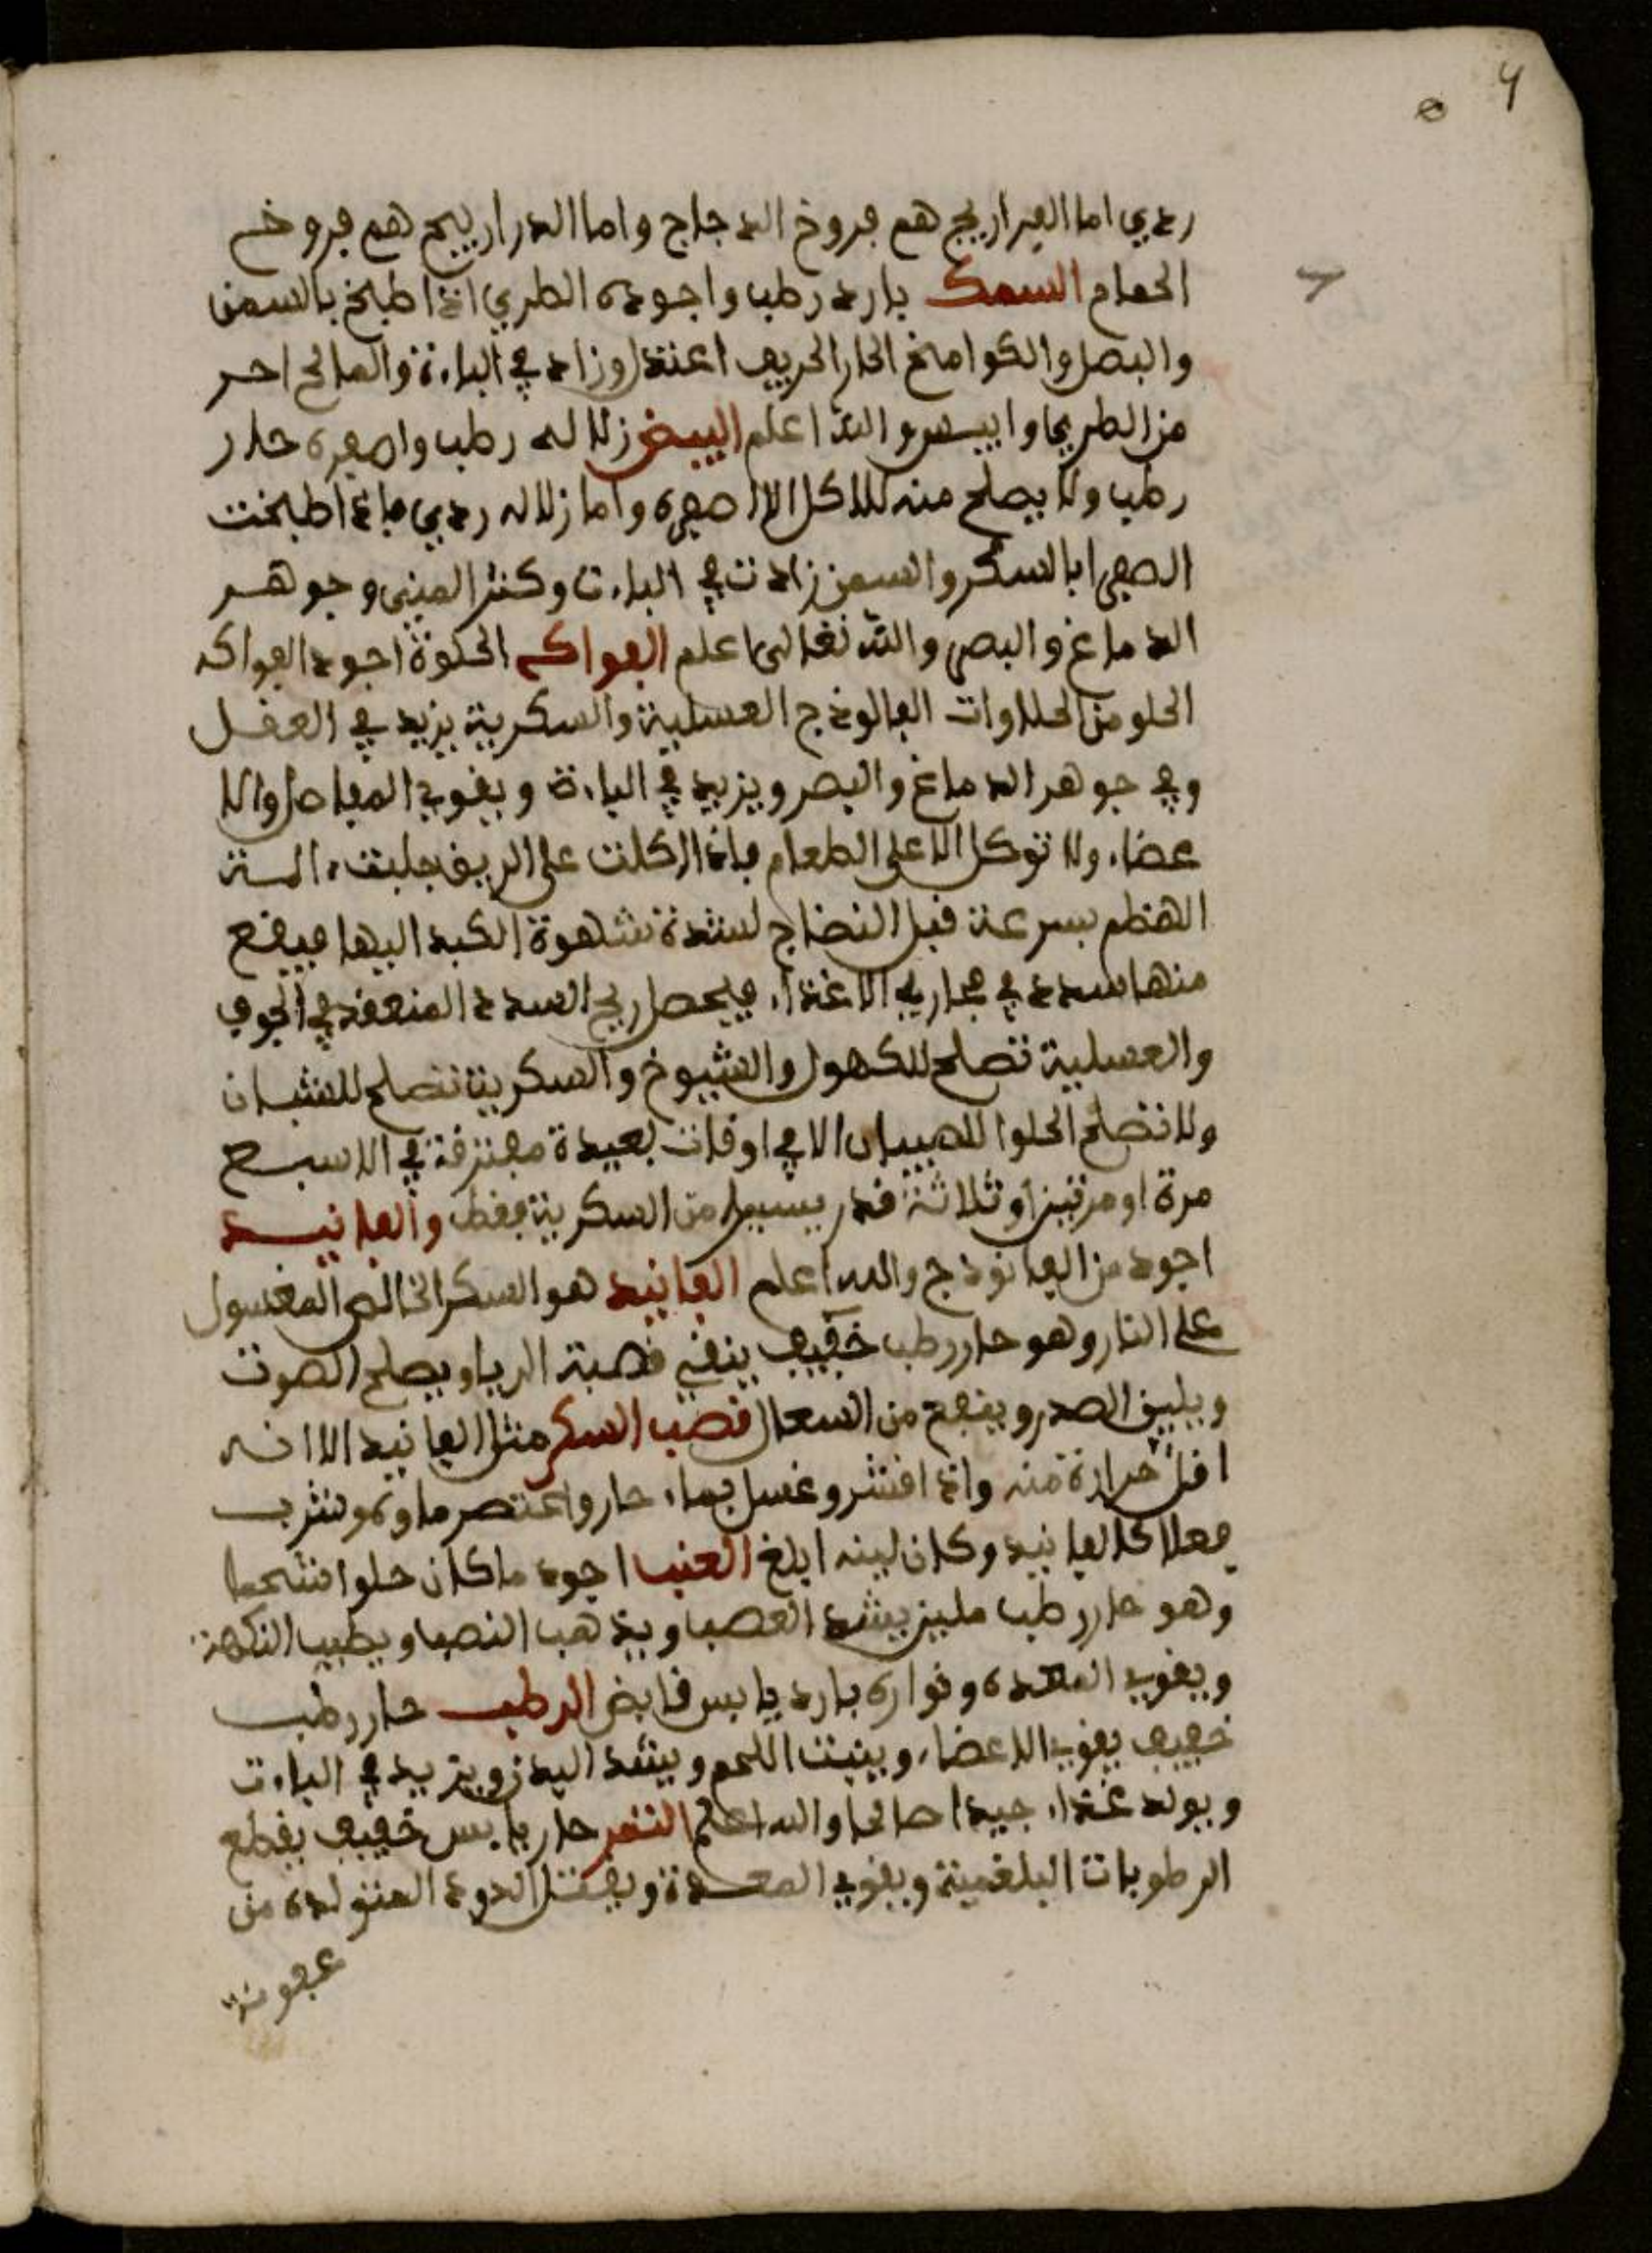 4
ردي اما الفراريج هم فروخ الدجاج واما الدراريج هم فروخ
الحمام السمك بارد رطب واجوده الطري اذا طبخ بالسمن
والبصل والكوامخ الحار الحريف اعتدل وزاد في الباءة والمالح احر
من الطري وايبس والله اعلم البيض زلاله رطب واصفره حار
رطب ولا يصلح منه للاكل الا اصفره واما زلاله ردي فاذا طبخت
الصفرا بالسكر والسمن زادت في الباءت وكثر المني وجوهر
الدماغ والبصر والله تعالى اعلم الفواكه الحلوة اجود الفواكه
الحلو من الحلاوات الفالوذج العسلية والسكرية يزيد في العقل
وفي جوهر الدماغ والبصر ويزيد في الباءة ويقوي المفاصل والا
عضاء ولا توكل الا على الطعام فاذا اكلت على الريق
الهظم بسرعة قبل النضاج لشدة شهوة الكبد اليها فيقع
منها سدد في مجاري الاغذاء فيحصل ريح السدد المنعقد في الجوف
والعسلية تصلح للكهول والشيوخ والسكرية تصلح للشبان
ولا تصلح الحلوا للصبيان الا في اوقات بعيدة مفترقة في الاسبع
مرة او مرتين او ثلاثة قدر يسير من السكرية فقط والفانيد
اجود من الفانوذج والله اعلم الفانيد هو السكر الخالص المغسول
على النار وهو حار رطب خفيف ينقي قصبة الريا ويصلح الصوت
ويليق الصدر وينفع من السعال قصب السكر مثل الفانيد الا انه
اقل حرارة منه واذا اقشر وغسل بماء حار واعتصر ماوه وشرب
فعلا كالفانيد وكان لينه ابلغ العنب اجود ما كان حلوا شحما
وهو حار رطب ملين يشد العصب ويذهب النصب ويطيب النكهة
ويقوي المعده ونواره بارد يابس قابض الرطب حار رطب
خفيف يقوي الاعضاء وينبت اللحم ويشد البدن ويزيد في الباءت
ويولد غذاء جيدا صالحا والله اعلم التمر حار يابس خفيف يقطع
الرطوبات البلغمية ويقوي المعدة ويقتل الدود المتولده من
عفونة